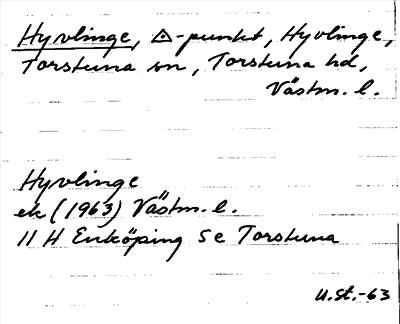 Hyvlinge, △-punkt, Hyvlinge,
Torstuna sn, Torstuna hd,
Västm. l.
Hyvlinge
ek (1963) Västm. l.
11 H Enköping 5 e Torstuna
U.St.-63